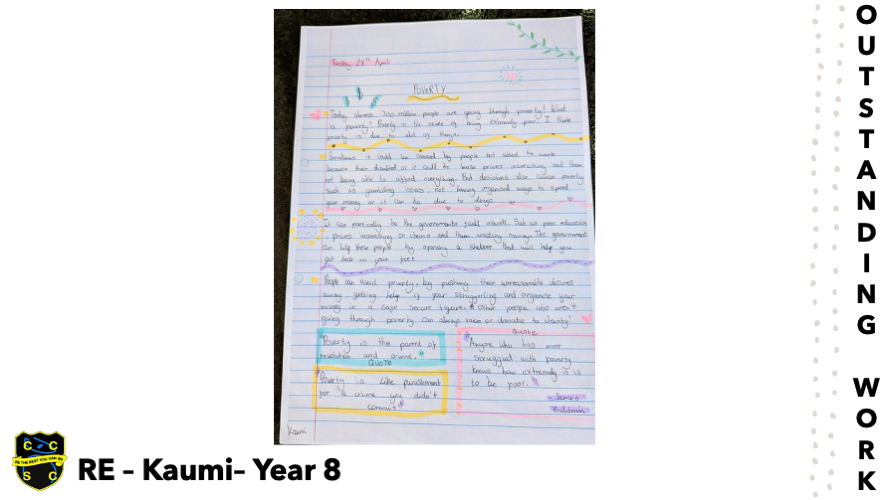 Tuesday 28th April
POVERTY
Today almost 700 million people are going through poverty! What
is poverty? Poverty is the state of being extremely poor. I think
poverty is due to alot of things.
Sometimes it could be caused by people not abled to work
because their disabled or it could be house prices increasing and them
not being able to afford everything. But decisions also cause poverty
such as gambling issues, not having organised ways to spend
your money or it can be due to drugs.
It can partically be the governments fault aswell. Such as poor education
, prices increasing on items and them wasting money. The government
can help these people by opening a shelter that will help you
get back on your feet
People can avoid poverty, by pushing their unreasonable desires
away, getting help if your struggerling and organise your
money in a safe secure figure. Other people who aren't
going through poverty can always raise or donate to charity!
"Poverty is the parent of
revolution and crime."
QUOTE
"Poverty is like punishment
for a crime you didn't
commit"
quote
"Anyone who has ever
struggled with poverty
knows how extremely it is
to be poor."
James
Baldwin
Kaumi
C C
BE THE BEST YOU CAN BE
S C
RE – Kaumi– Year 8
OUTSTANDING WORK